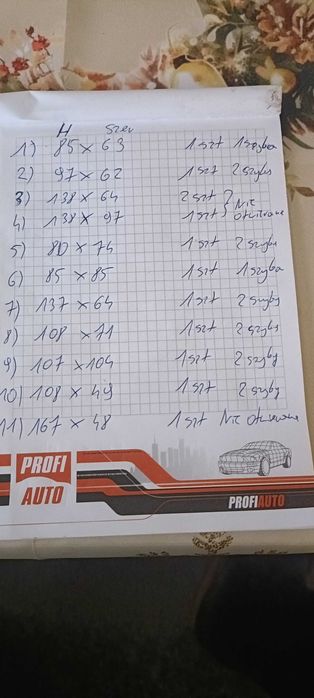 H szer
1) 85 x 63 1szt 1szyba
2) 97 x 62 1szt 2 szyby
3) 138 x 64 2szt
4) 138 x 97 1szt } Nie otwierane
5) 80 x 74 1szt 2 szyby
6) 85 x 85 1szt 1szyba
7) 137 x 64 1szt 2 szyby
8) 108 x 71 1szt 2 szyby
9) 107 x 104 1szt 2 szyby
10) 108 x 49 1szt 2 szyby
11) 167 x 48 1szt Nie otwierane
PROFI
AUTO
PROFIAUTO